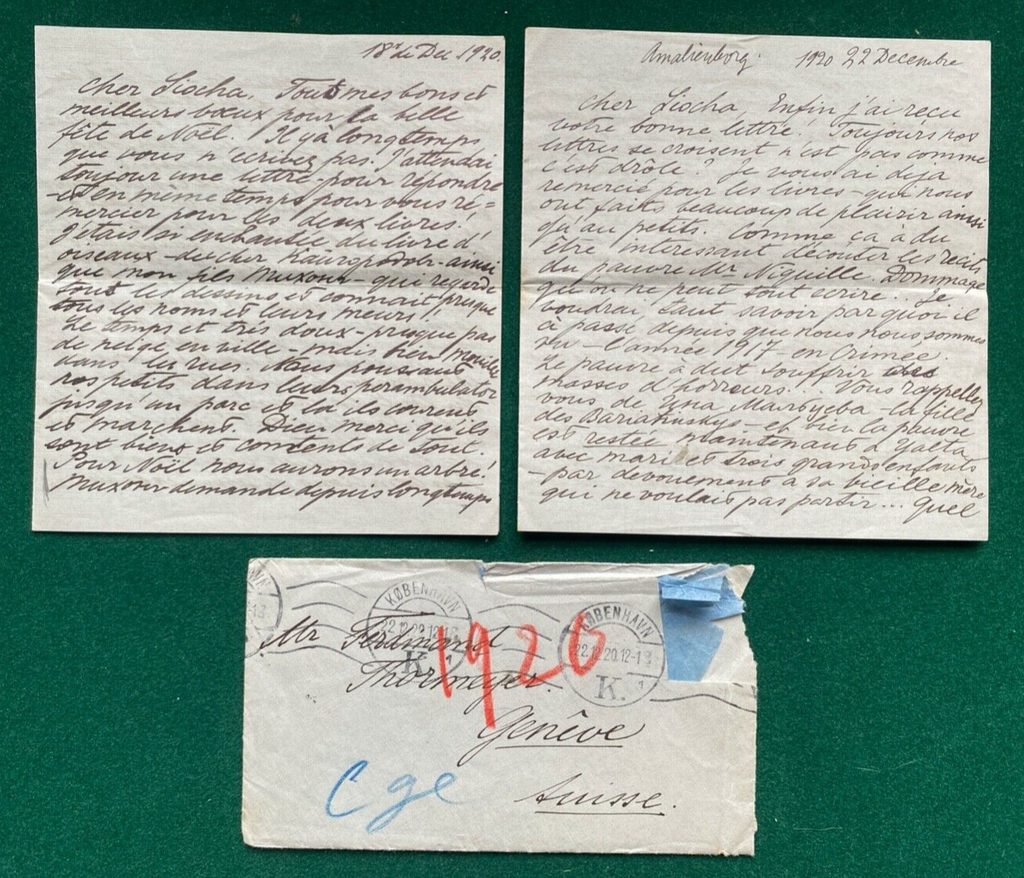 18 de Dec 1920.
Cher Siocha, Tous mes bons et
meilleurs vœux pour la belle
fête de Noël. Il y à longtemps
que vous n'ecrivez pas. J'attendai
toujour une lettre pour répondre
et en même temps pour vous re=
mercier pour les deux livres!
J'étais si enchantée du livre d'
oiseaux - du cher - ainsi
que mon fils Тихон - qui regarde
tout les dessins et connait presque
tous les noms et leurs meurs!
Le temps et très doux - presque pas
de neige en ville mais bien mouillé
dans les rues. Nous poussons
nos petits dans leurs perambulator
jusqu'au parc et la ils courent
et marchent. Dieu merci qu'ils
sont biens et contents de tout.
Pour Noël nous aurons un arbre!
Тихон demande depuis longtemps
Amalienborg. 1920 22 Decembre
Cher Siocha, Enfin j'ai reçu
votre bonne lettre. Toujours nos
lettres se croisent n'est pas comme
c'est drôle? Je vous ai deja
remercié pour les livres - qui nous
ont faits beaucoup de plaisir ainsi
qu'au petits. Comme ça à du
être interessant d'écouter les recits
du pauvre Mr Niquille. Dommage
qu'on ne peut tout ecrire... Je
voudrai tant savoir par quoi il
à passé depuis que nous nous sommes
vu - l'année 1917 - en Crimée.
Le pauvre à dut souffrir des
masses d'horreurs! Vous rappellez
vous de - la fille
des Bariatinskys - et bien la pauvre
est restée maintenant à Yalta
avec mari et trois grands enfants
- par devouement à sa vieille mère
qui ne voulais pas partir... quel
KØBENHAVN
22.12.20.12-1
K.
1
KØBENHAVN
22.12.20.12-1
K.
1
Mr Ferdinand
Thormeyer.
Genêve
Suisse.
1920
Cge